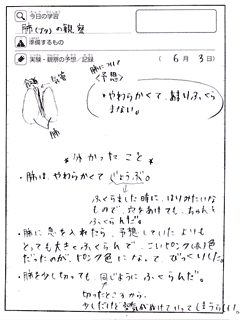 今日の学習
肺(ブタ)の観察
準備するもの
実験・観察の予想/記録
(6月3日)
肺について
<予想>
食道
気管
肺
・やわらかくて、あまりふくらまない。
*分かったこと*
・肺は、やわらかくてじょうぶ。
ふくらました時に、はりみたいな
もので、穴をあけても、ちゃんと
ふくらんだ。
・肺に息を入れたら、予想していたよりも
とっても大きくふくらんで、こいピンク(赤)色
だったのが、ピンク色になって、びっくりした。
・肺を少し切っても、同じように ふくらんだ。
切ったところから、
少しだけど空気がぬけていって(しまうらしい)。